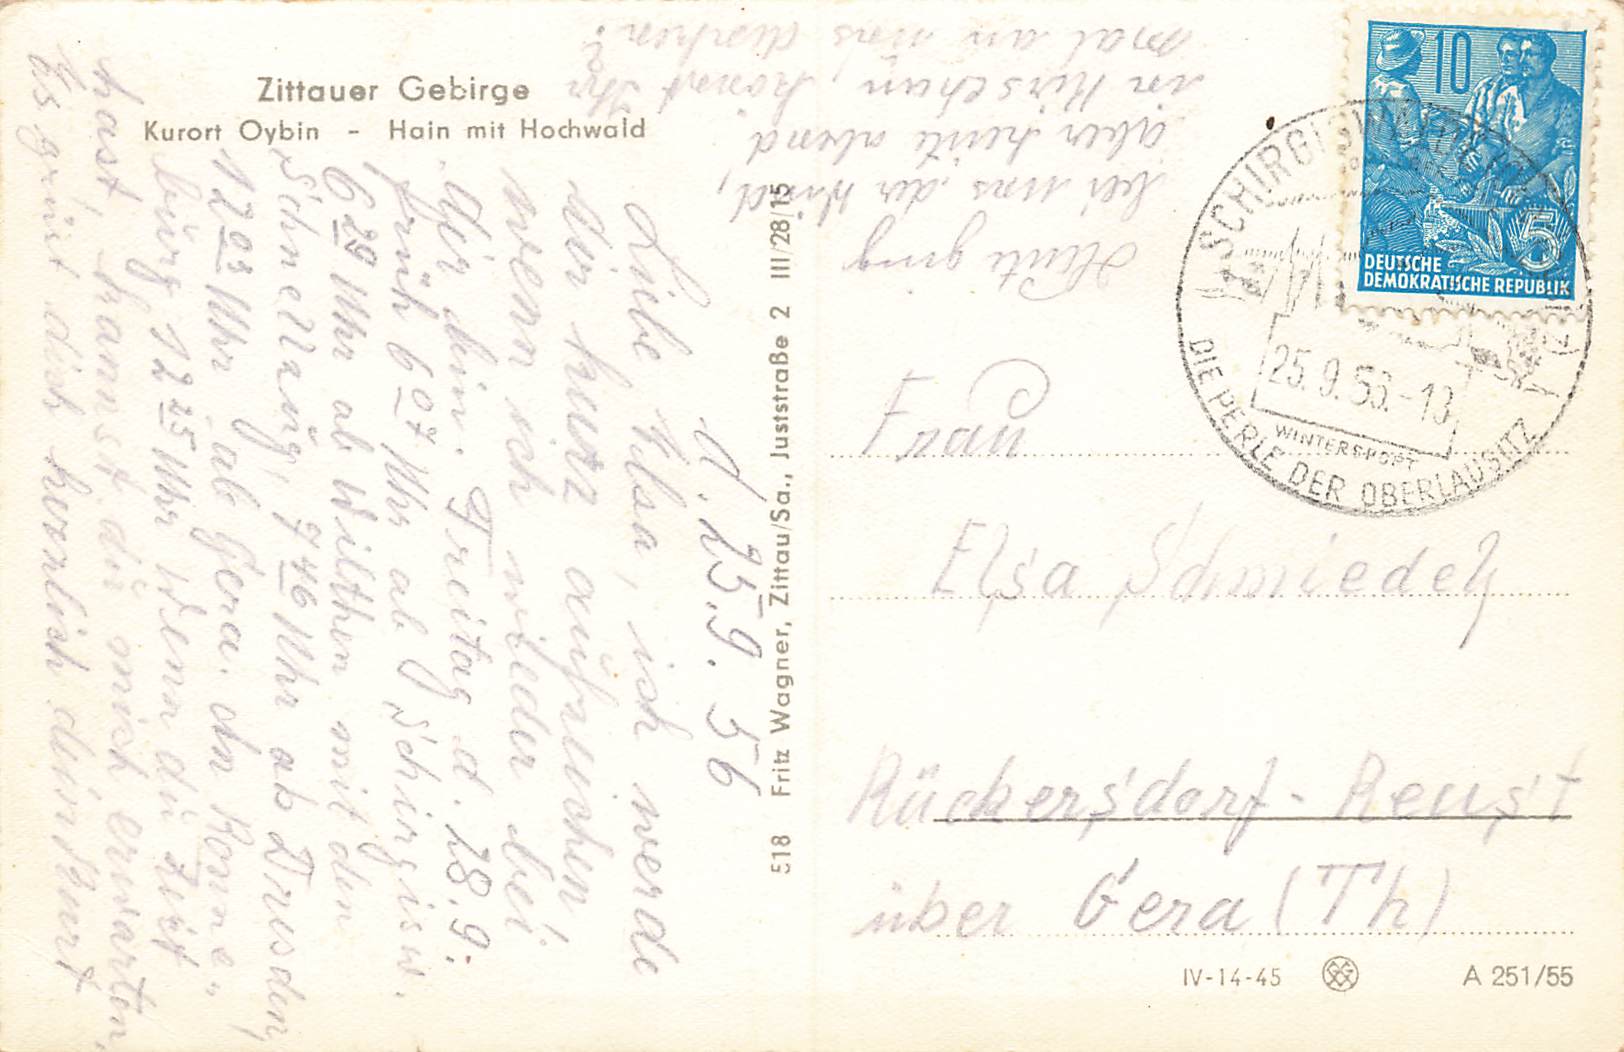 Zittauer Gebirge
Kurort Oybin - Hain mit Hochwald
d. 25.9.56
Liebe Elsa, ich werde
dir kurz aufzeichen
wenn ich wieder bei
dir bin. Freitag d. 28.9.
früh 6 07 Uhr ab Schirgisw.
6 29 Uhr ab Wilthen mit den
Schnellzug, 7 46 Uhr ab Dresden,
12 03 Uhr ab Gera. In Ronne„
burg 12 25 Uhr Wenn du Zeit
hast, kannst du mich erwarten,
Es grüßt dich herzlich dein Kurt
Heute ging
bei uns der Wind,
aber heute abend
in Kirschau, könnt Ihr
mal an uns denken?
518 Fritz Wagner, Zittau/Sa., Juststraße 2 III/28/15
10
5
DEUTSCHE
DEMOKRATISCHE REPUBLIK
SCHIRGISWALDE
25.9.56.-13
WINTERSPORT
DIE PERLE DER OBERLAUSITZ
Frau
Elsa Schmiedel
Rückersdorf - Reust
über Gera (Th)
IV-14-45
A 251/55